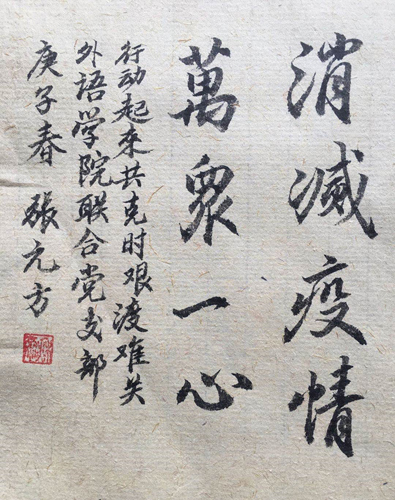 消滅疫情
萬眾一心
行动起來共克时艰渡难关
外语学院联合党支部
庚子春 張元方